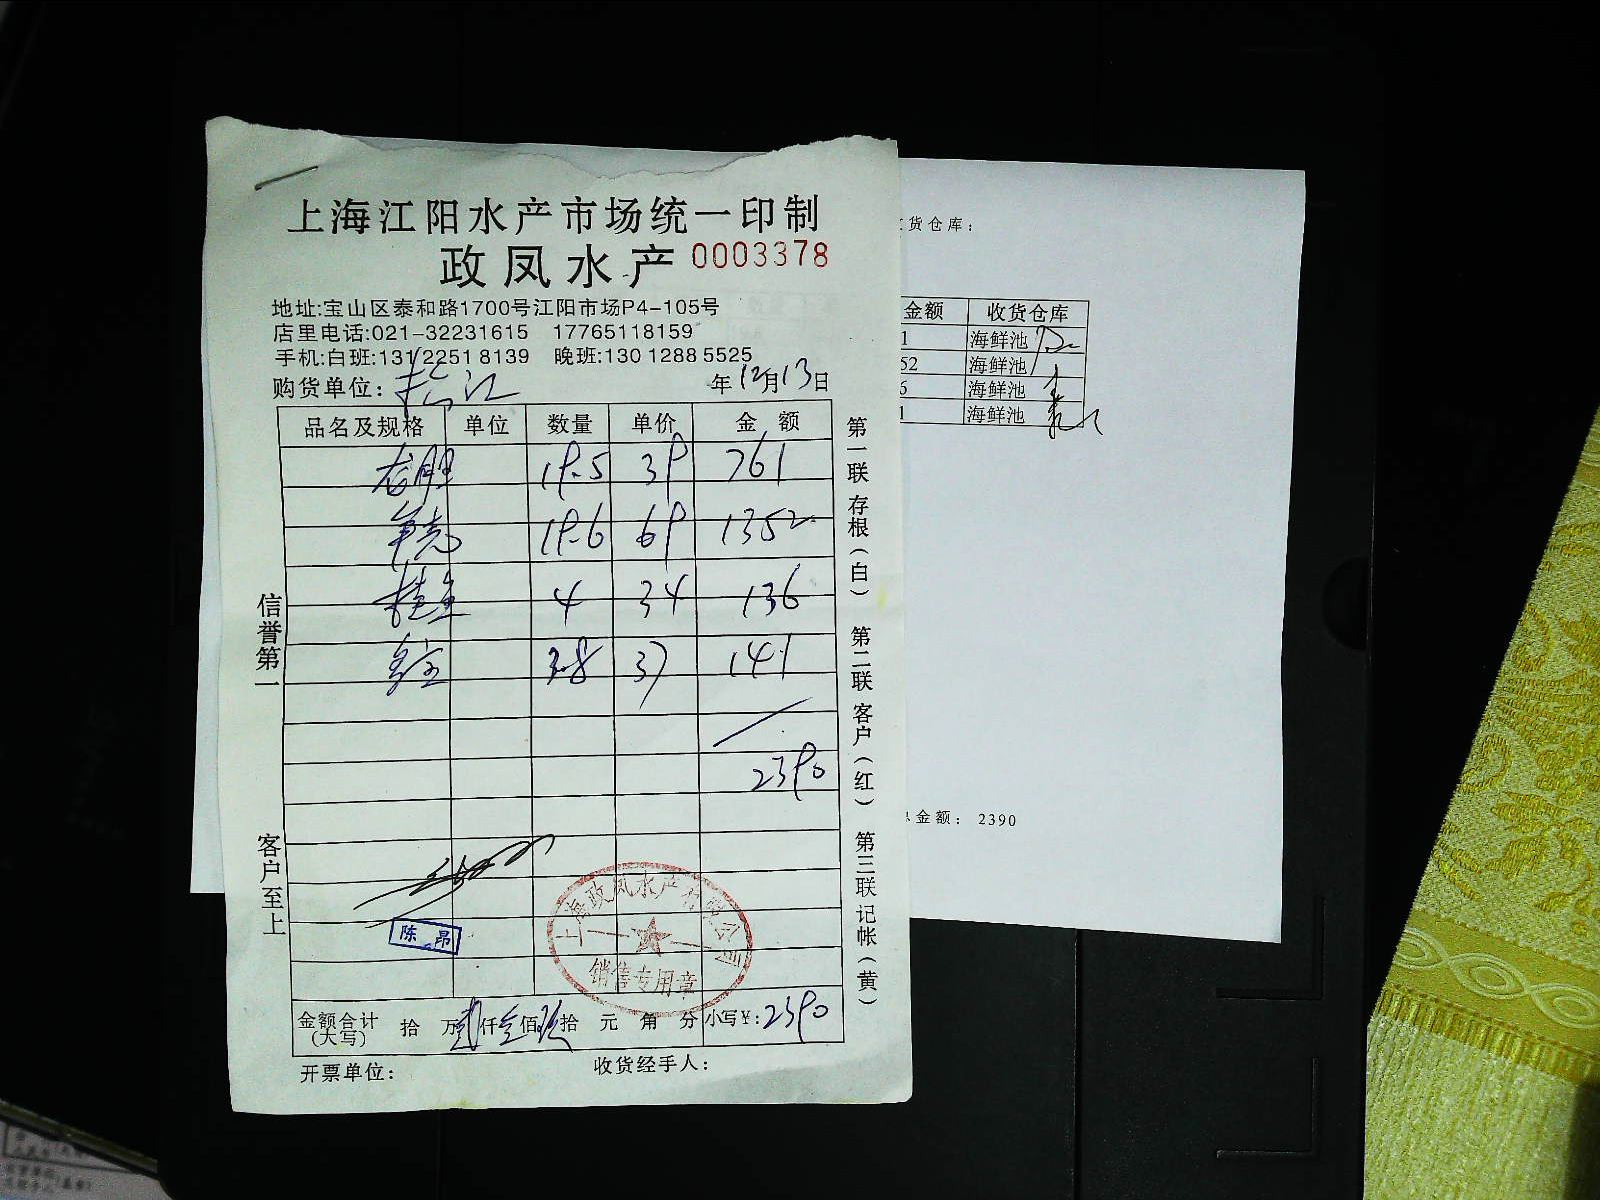 上海江阳水产市场统一印制
政凤水产 0003378
地址:宝山区泰和路1700号江阳市场P4-105号
店里电话:021-32231615 17765118159
手机:白班:131 2251 8139 晚班:130 1288 5525
购货单位: 松江 年12月13日
品名及规格 单位 数量 单价 金 额
龙胆 19.5 39 761
笋壳 19.6 69 1352
桂鱼 4 34 136
多宝 3.8 37 141
2390
陈 昂
上海政凤水产有限公司
销售专用章
金额合计(大写) 拾 万贰仟叁佰玖拾 元 角 分 小写￥: 2390
开票单位: 收货经手人:
信誉第一
客户至上
第一联 存根(白) 第二联 客户(红) 第三联 记帐(黄)
货仓库:
金额 收货仓库
1 海鲜池
52 海鲜池
6 海鲜池
1 海鲜池
金额: 2390